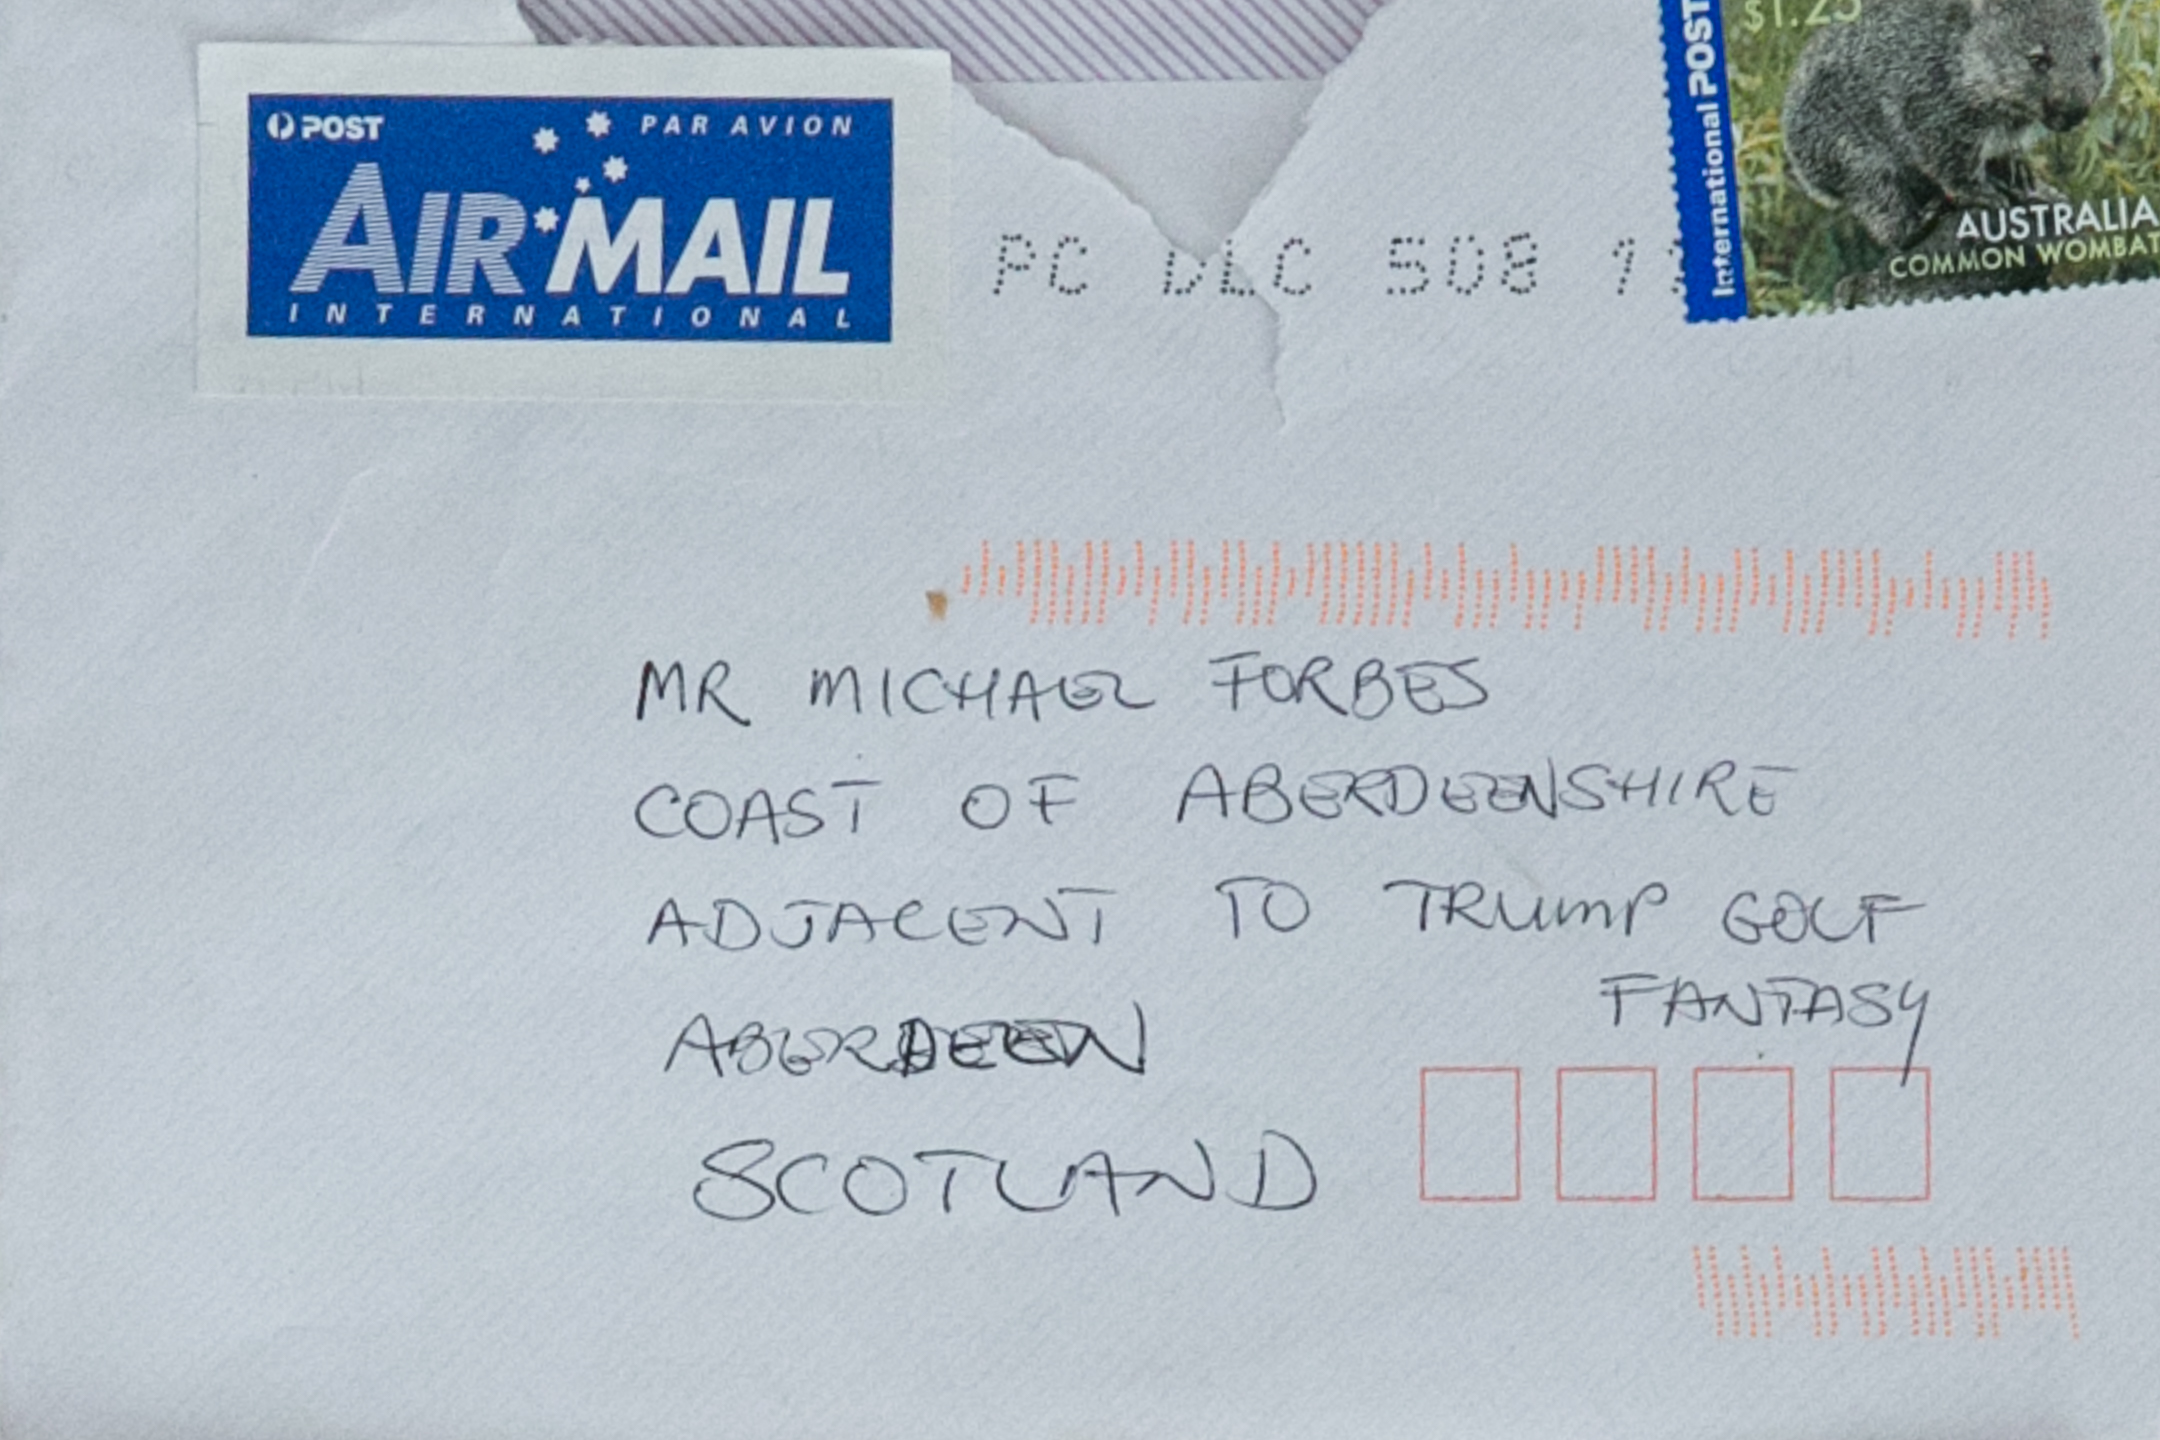 POST PAR AVION
AIR MAIL
INTERNATIONAL
$1.25
International POST
AUSTRALIA
COMMON WOMBAT
PC DLC 508
MR MICHAEL FORBES
COAST OF ABERDEENSHIRE
ADJACENT TO TRUMP GOLF
FANTASY
ABERDEEN
SCOTLAND